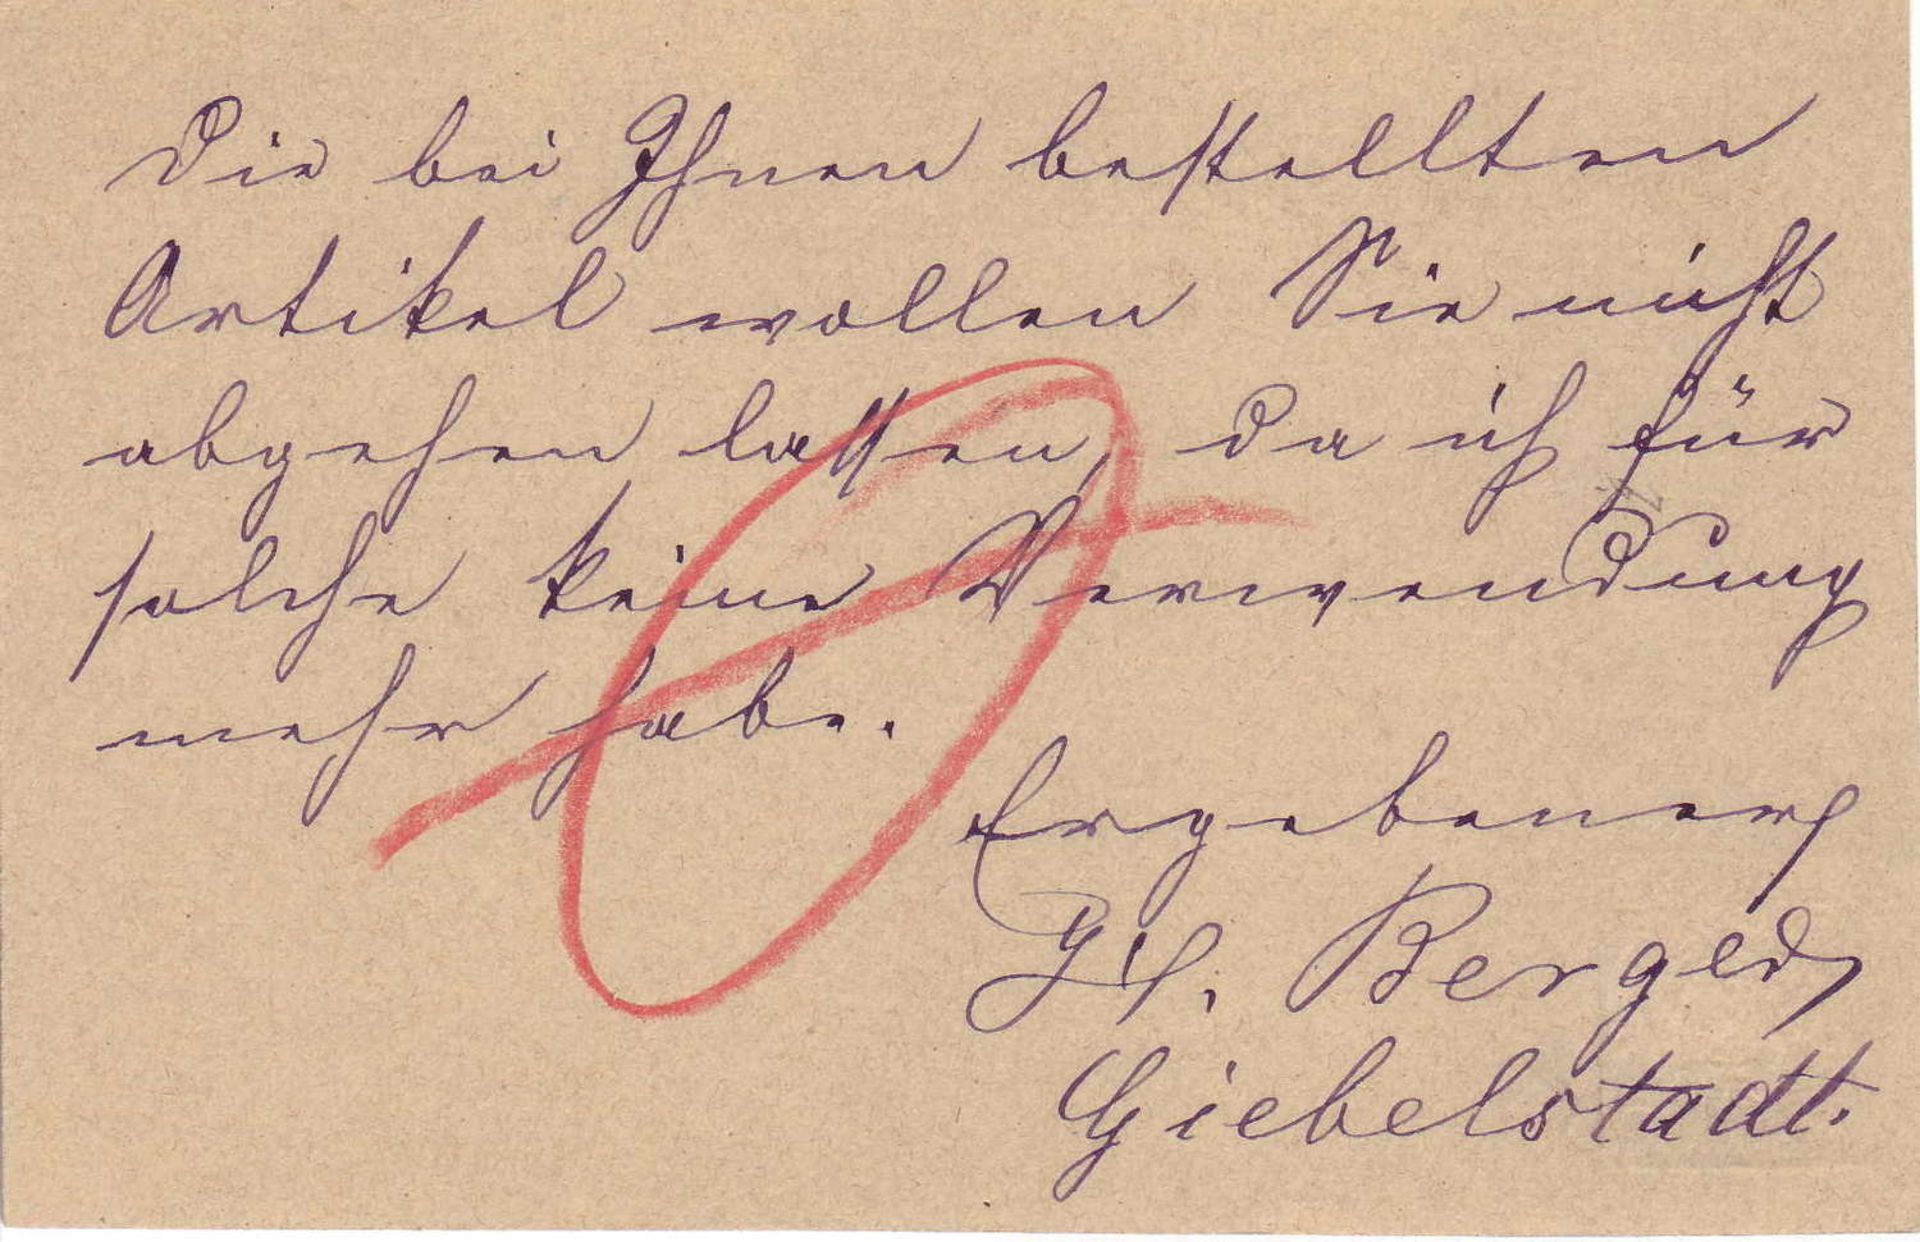 Die bei Ihnen bestellten
Artikel wollen Sie nicht
abgehen lassen, da ich für
solche keine Verwendung
mehr habe.
Ergebenst
Berged
Giebelstadt.